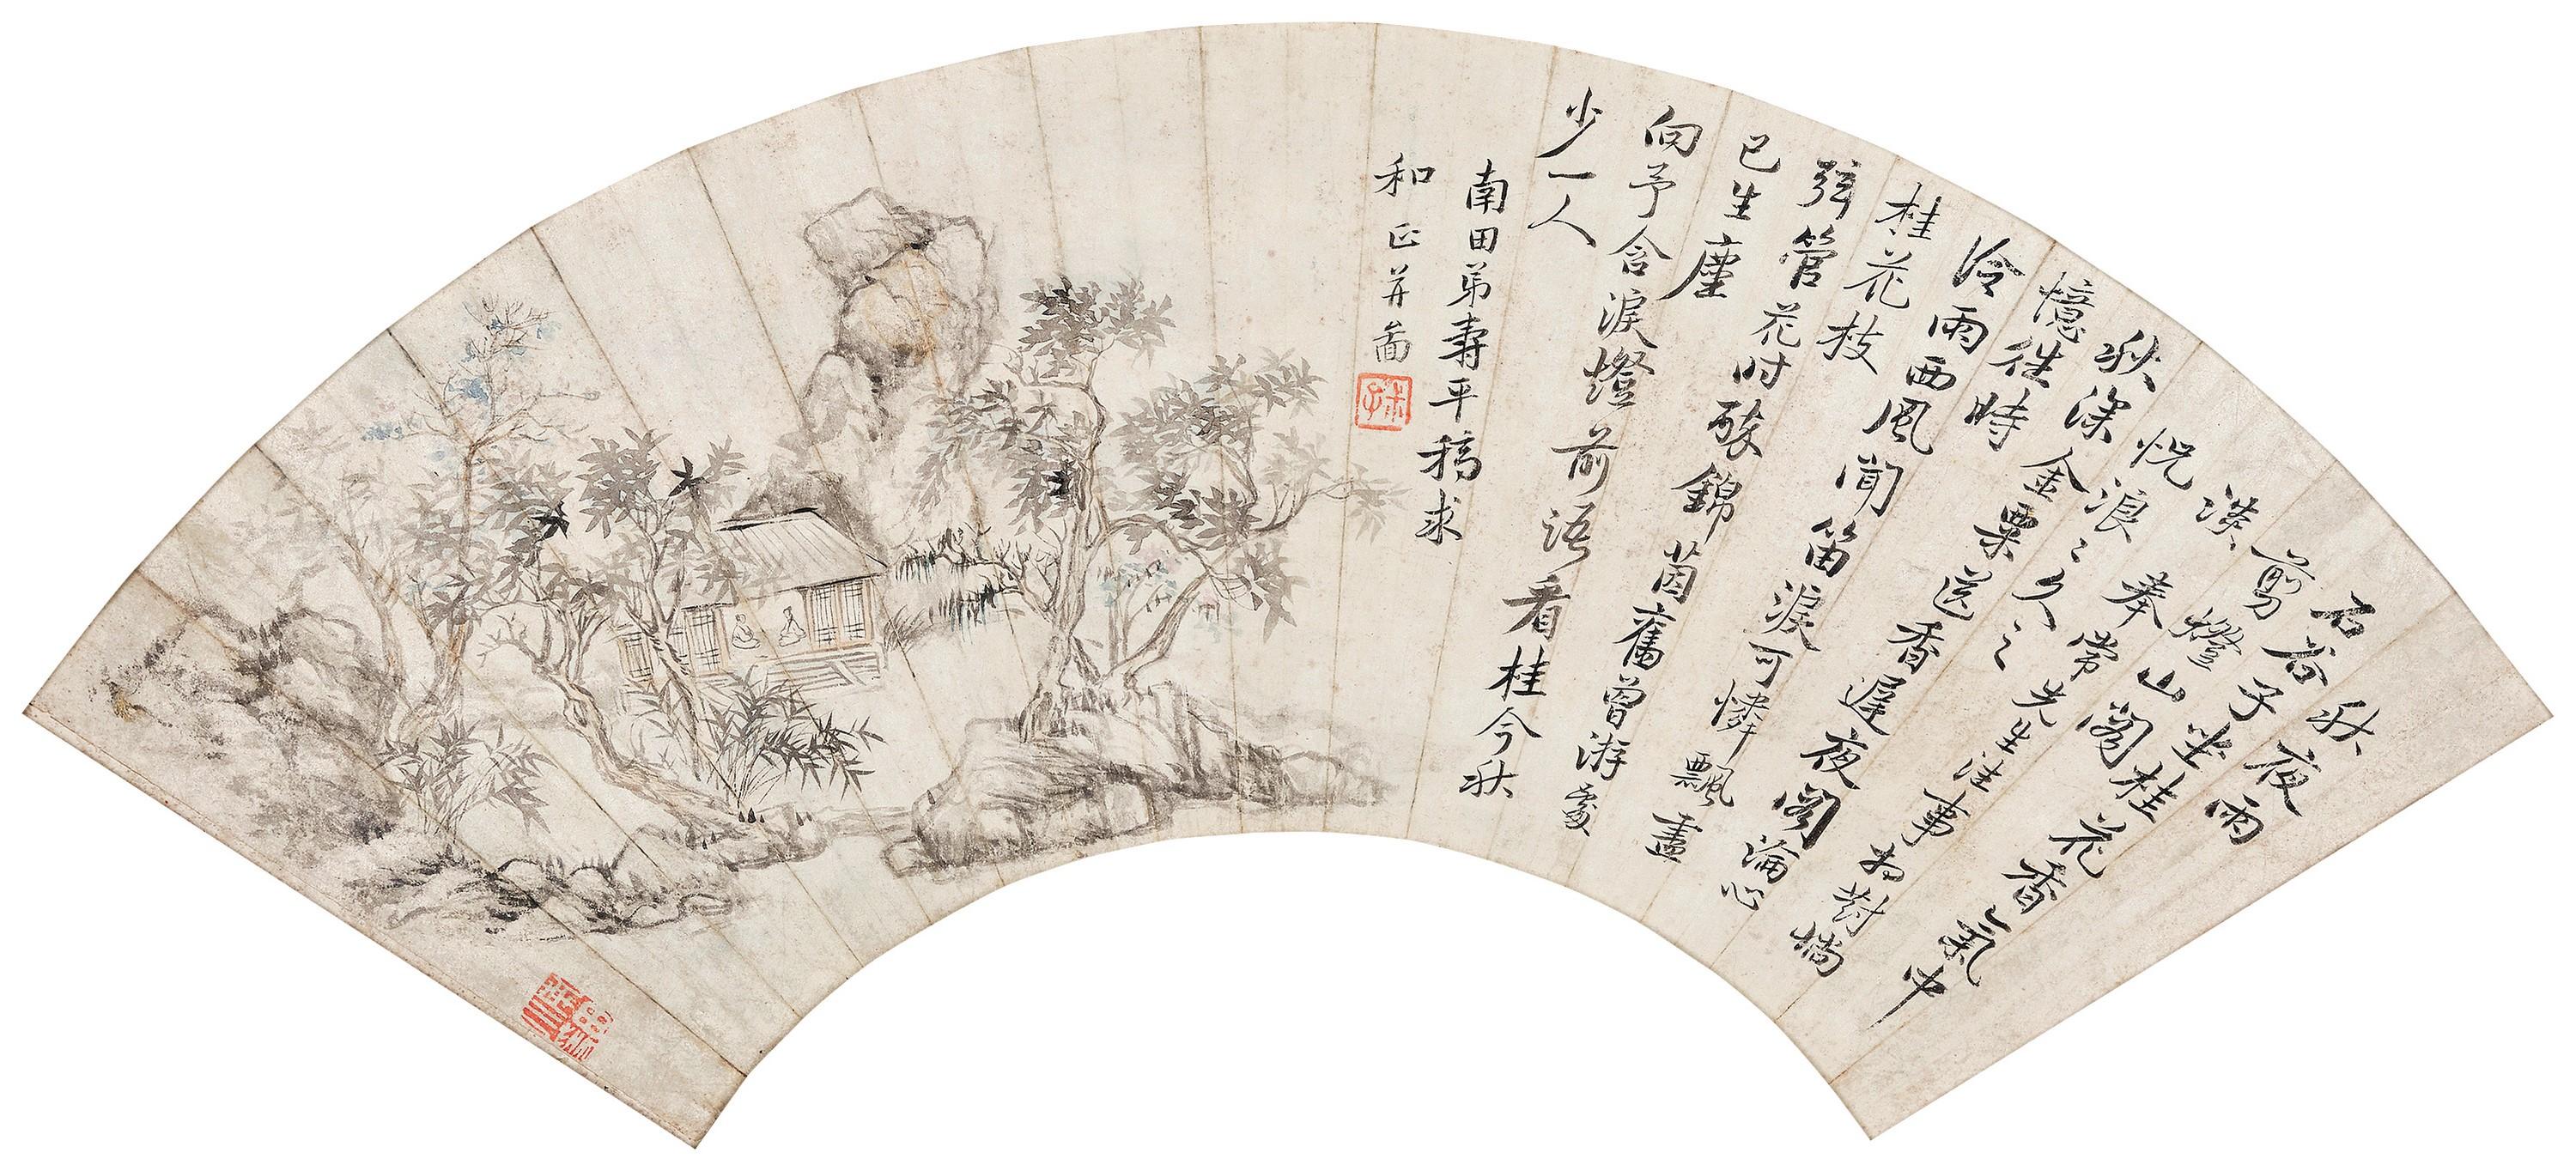 秋夜雨
石谷子坐桂花香氣中
剪燈山閣
淡奉常先生往事相對惝
怳浪々久之
秋深金粟送香遲夜閣淪心
憶往時
冷雨西風聞笛淚可憐飄盡
桂花枝
弦管花時醉錦茵舊曾游處
已生塵
向予含淚燈前語看桂今秋
少一人
南田弟壽平稿求
和正并圖